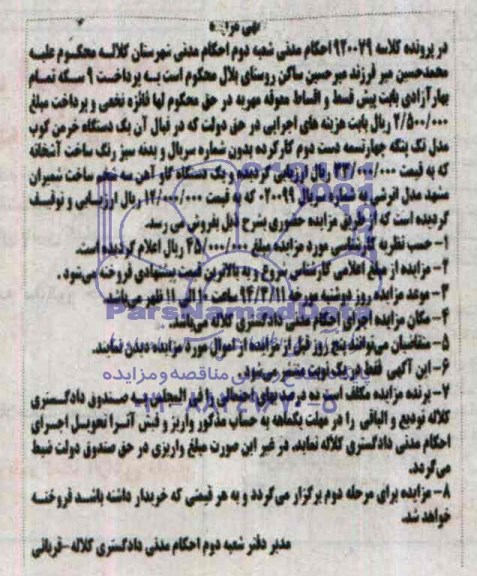 آگهی مزایده
در پرونده کلاسه ۹۲۰۰۷۹ احکام مدنی شعبه دوم احکام مدنی شهرستان کلاله محکوم علیه
محمدحسین میر فرزند میرحسین ساکن روستای بلال محکوم است به پرداخت ۹ سکه تمام
بهار آزادی بابت پیش قسط و اقساط معوقه مهریه در حق محکوم لها فائزه نخعی و پرداخت مبلغ
۲/۵۰۰/۰۰۰ ریال بابت هزینه های اجرایی در حق دولت که در قبال آن یک دستگاه خرمن کوب
مدل تگ پنگه چهارتسمه دست دوم کارکرده بدون شماره سریال و بدنه سبز رنگ ساخت آشخانه
که به قیمت ۳۳/۰۰۰/۰۰۰ ریال ارزیابی گردیده و یک دستگاه گاو آهن سه شخم ساخت شمیران
مشهد مدل اترشی به شماره سریال ۰۲۰۰۹۹ که به قیمت ۱۲/۰۰۰/۰۰۰ ریال ارزیابی و توقیف
گردیده است که از طریق مزایده حضوری بشرح ذیل بفروش می رسد.
۱- حسب نظریه کارشناسی مورد مزایده مبلغ ۴۵/۰۰۰/۰۰۰ ریال اعلام گردیده است.
۲- مزایده از مبلغ اعلامی کارشناس شروع و به بالاترین قیمت پیشنهادی فروخته می‌شود.
۳- موعد مزایده روز دوشنبه مورخه ۹۴/۳/۱۱ ساعت ۱۰ الی ۱۱ ظهر می‌باشد.
۴- مکان مزایده اجرای احکام مدنی دادگستری کلاله می‌باشد.
۵- متقاضیان می‌توانند پنج روز قبل از مزایده از اموال مورد مزایده دیدن نمایند.
۶- این آگهی فقط در یک نوبت منتشر می‌شود.
۷- برنده مزایده مکلف است ده درصد بهای احتمالی را فی المجلس به صندوق دادگستری
کلاله تودیع و الباقی را در مهلت یکماهه به حساب مذکور واریز و فیش آنرا تحویل اجرای
احکام مدنی دادگستری کلاله نماید. در غیر این صورت مبلغ واریزی در حق صندوق دولت ضبط
می‌گردد.
۸- مزایده برای مرحله دوم برگزار می‌گردد و به هر قیمتی که خریدار داشته باشد فروخته
خواهد شد.
مدیر دفتر شعبه دوم احکام مدنی دادگستری کلاله-قربانی
ParsNamadData
پایگاه اطلاع رسانی مناقصه و مزایده
۰۲۱-۸۸۳۴۹۶۷۰-۵